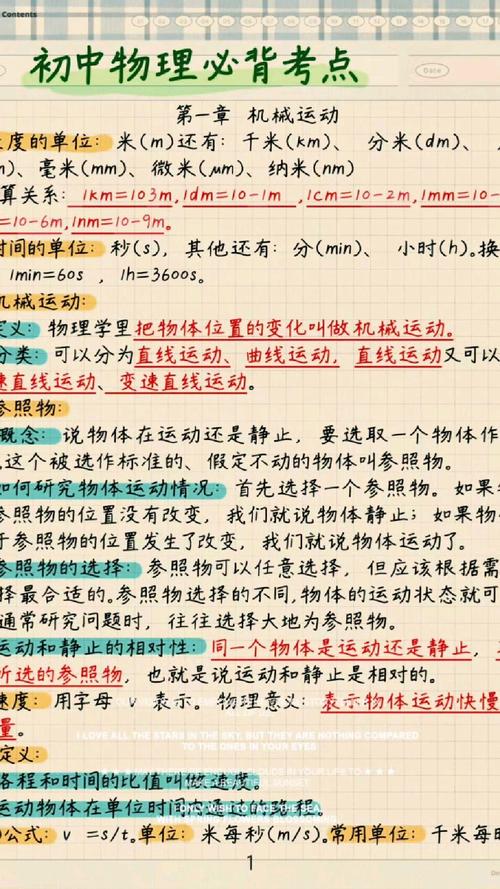 Contents
初中物理必背考点
Date
第一章 机械运动
度的单位: 米(m)还有: 千米(km)、 分米(dm)、
m)、毫米(mm)、微米(μm)、纳米(nm)
算关系: 1km=103m,1dm=10-1m ,1cm=10-2m,1mm=10-
=10-6m,1nm=10-9m。
时间的单位: 秒(s), 其他还有: 分(min)、 小时(h)。换
1min=60s , 1h=3600s。
机械运动:
定义: 物理学里把物体位置的变化叫做机械运动。
分类: 可以分为直线运动、曲线运动, 直线运动又可以
速直线运动、变速直线运动。
参照物:
概念: 说物体在运动还是静止, 要选取一个物体作
,这个被选作标准的、假定不动的物体叫参照物。
如何研究物体运动情况: 首先选择一个参照物。如果
参照物的位置没有改变, 我们就说物体静止; 如果物
于参照物的位置发生了改变, 我们就说物体运动了。
参照物的选择: 参照物可以任意选择, 但应该根据需
择最合适的。参照物选择的不同,物体的运动状态就可
通常研究问题时, 往往选择大地为参照物。
运动和静止的相对性: 同一个物体是运动还是静止,
所选的参照物, 也就是说运动和静止是相对的。
速度: 用字母 v 表示。物理意义: 表示物体运动快慢
量。
I LOVE ALL THE STARS IN THE SKY, BUT THEY ARE NOTHING COMPARED
TO THE ONES IN YOUR EYES
定义:
路程和时间的比值叫做速度。
运动物体在单位时间内通过的路程。
ONLY WISH TO FACE THE SEA,
WITH SPRING FLOWERS BLOSSOMING
公式: v =s/t。单位: 米每秒(m/s)。常用单位: 千米每时
1